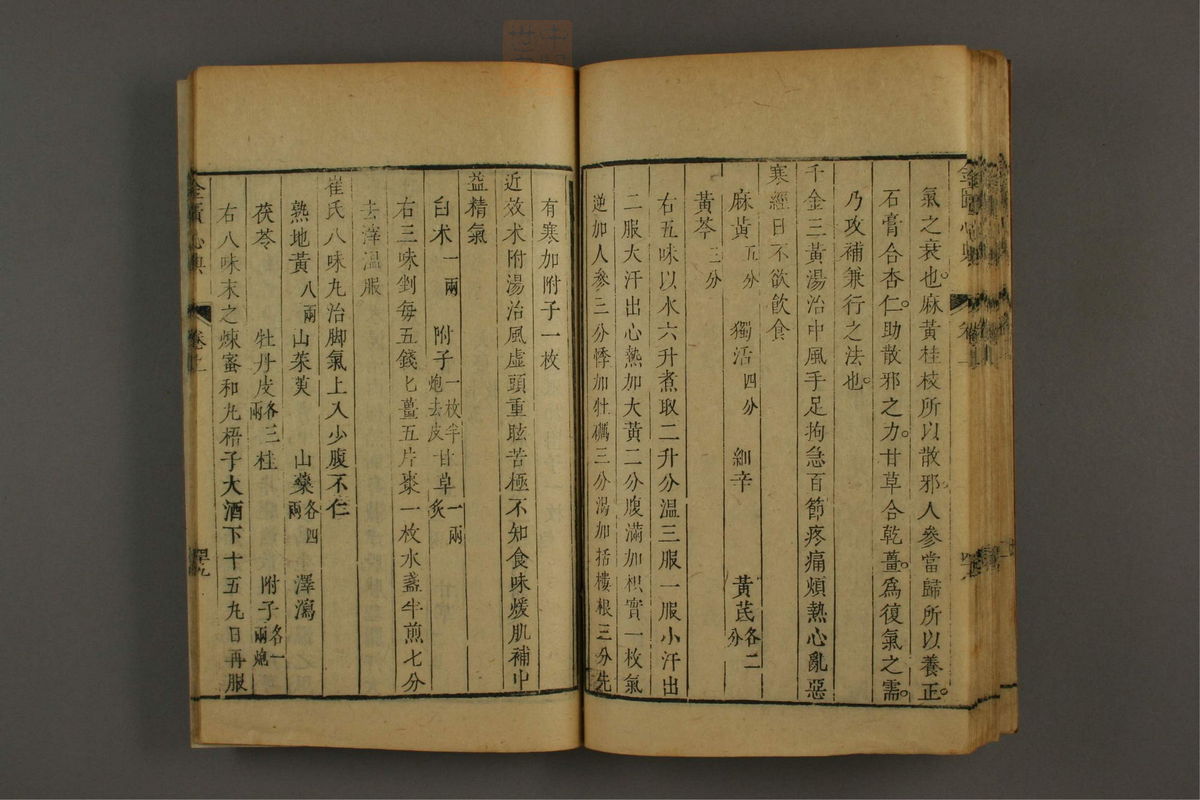 氣之衰也。麻黃桂枝所以散邪。人參當歸所以養正。
石膏合杏仁。助散邪之力。甘草合乾薑。爲復氣之需。
乃攻補兼行之法也。
千金三黃湯治中風手足拘急百節疼痛煩熱心亂惡
寒經日不欲飲食
麻黃五分 獨活四分 細辛 黃芪各二分
黃芩三分
右五味以水六升煮取二升分溫三服一服小汗出
二服大汗出心熱加大黃二分腹滿加枳實一枚氣
逆加人參三分悸加牡礪三分渴加括樓根三分先
有寒加附子一枚
近效术附湯治風虛頭重眩苦極不知食味煖肌補中
益精氣
白术一兩 附子一枚半炮去皮 甘草一兩炙
右三味剉每五錢匕薑五片棗一枚水盞半煎七分
去滓溫服
崔氏八味丸治脚氣上入少腹不仁
熟地黃八兩 山茱萸 山藥各四兩 澤瀉
茯苓 牡丹皮各三兩 桂 附子各一兩炮
右八味末之煉蜜和丸梧子大酒下十五丸日再服
金匱心典 卷上